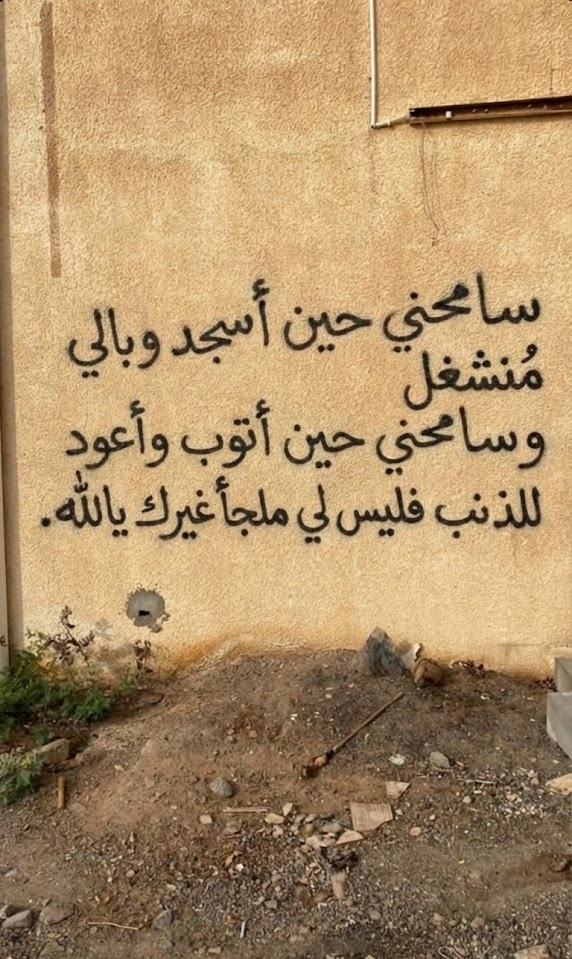 سامحني حين أسجد وبالي
مُنشغل
وسامحني حين أتوب وأعود
للذنب فليس لي ملجأ غيرك ياللّٰه.